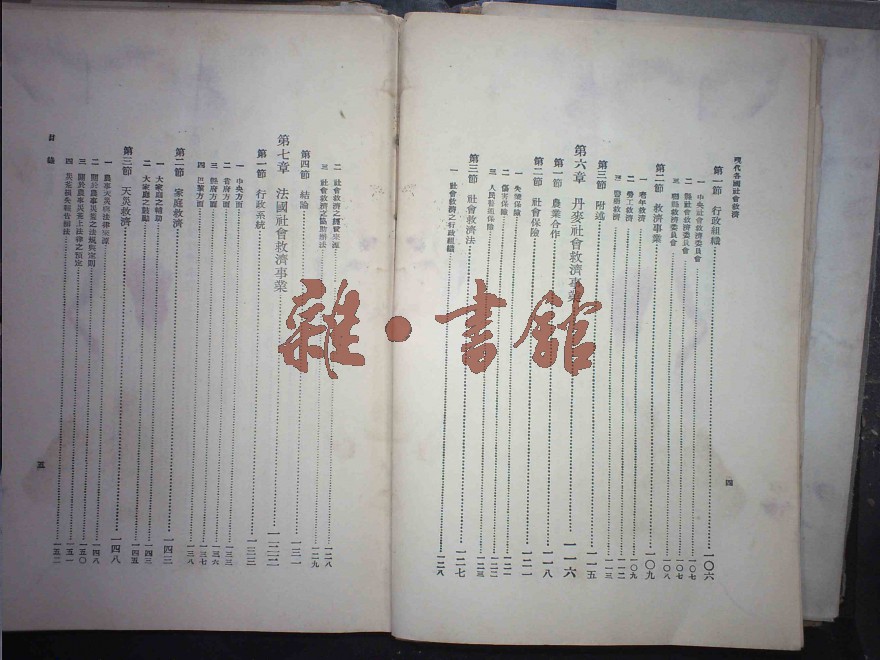 現代各國社會救濟
第一節 行政組織 一〇六
一 中央社會救濟委員會 一〇七
二 縣社會救濟委員會 一〇七
三 鄉鎮救濟委員會 一〇八
第二節 救濟事業 一〇九
一 老年救濟 一〇九
二 勞工救濟 一一二
三 醫藥救濟 一一三
第三節 附述 一一五
第六章 丹麥社會救濟事業 一一六
第一節 農業合作 一一八
第二節 社會保險 一二一
一 失業保險 一二一
二 傷害保險 一二二
三 人民養老保險 一二三
第三節 社會救濟法 一二七
一 社會救濟之行政組織 一二八
四
二 社會救濟之經費來源 一二八
三 社會救濟之協助辦法 一二九
第四節 結論 一三一
第七章 法國社會救濟事業 一三三
第一節 行政系統 一三三
一 中央方面 一三三
二 省府方面 一三六
三 縣府方面 一三七
四 巴黎方面 一三八
第二節 家庭救濟 一四三
一 大家庭之補助 一四三
二 大家庭之鼓勵 一四五
第三節 天災救濟 一四八
一 農事天災與法律來源 一四八
二 關於農事災荒之法規與定則 一五〇
三 關於農事災荒上法律之預定 一五一
四 災荒損失報告辦法 一五二
目錄
五
雜·書館